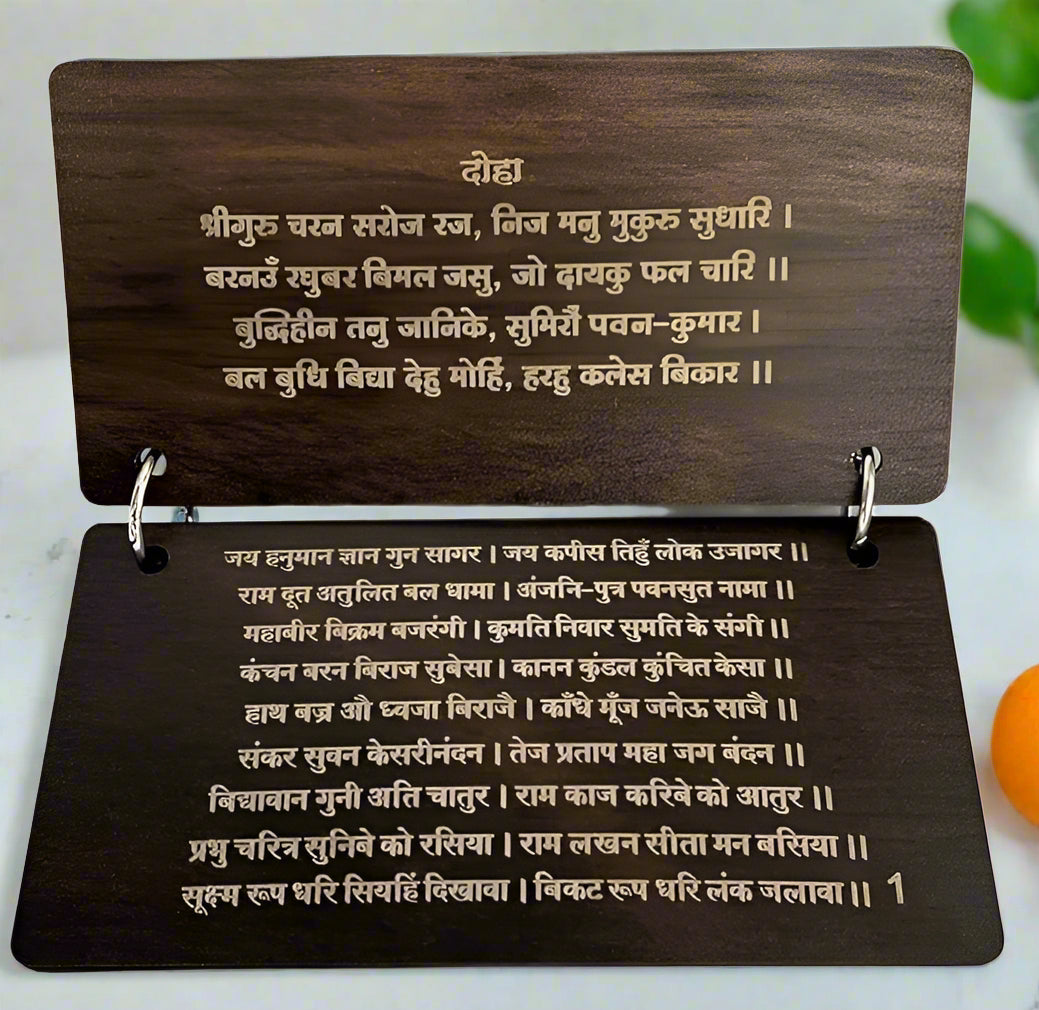 दोहा
श्रीगुरु चरन सरोज रज, निज मनु मुकुरु सुधारि ।
बरनउँ रघुबर बिमल जसु, जो दायकु फल चारि ।।
बुद्धिहीन तनु जानिके, सुमिरौं पवन-कुमार ।
बल बुधि बिद्या देहु मोहिं, हरहु कलेस बिकार ।।
जय हनुमान ज्ञान गुन सागर । जय कपीस तिहुँ लोक उजागर ।।
राम दूत अतुलित बल धामा । अंजनि-पुत्र पवनसुत नामा ।।
महाबीर बिक्रम बजरंगी । कुमति निवार सुमति के संगी ।।
कंचन बरन बिराज सुबेसा । कानन कुंडल कुंचित केसा ।।
हाथ बज्र औ ध्वजा बिराजै । काँधे मूँज जनेऊ साजै ।।
संकर सुवन केसरीनंदन । तेज प्रताप महा जग बंदन ।।
बिद्यावान गुनी अति चातुर । राम काज करिबे को आतुर ।।
प्रभु चरित्र सुनिबे को रसिया । राम लखन सीता मन बसिया ।।
सूक्ष्म रूप धरि सियहिं दिखावा । बिकट रूप धरि लंक जलावा ।। 1